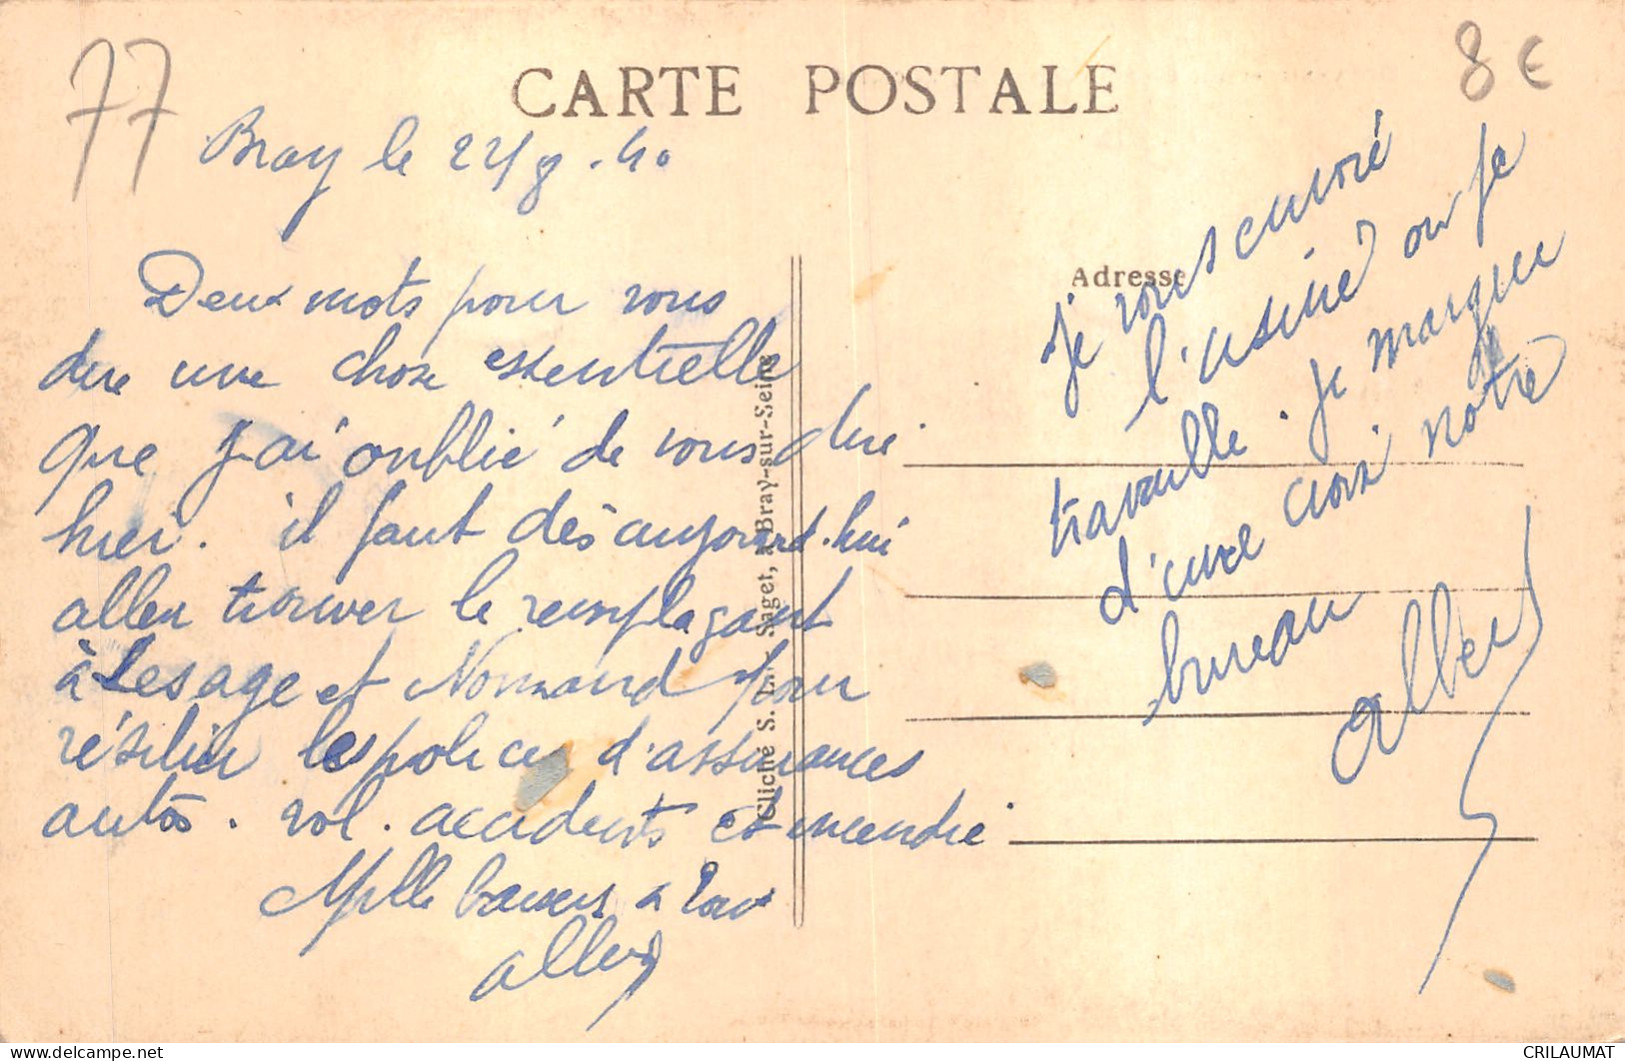 77
8 €
CARTE POSTALE
Bray le 22/8.40
Deux mots pour vous
dire une chose essentielle
que j'ai oublié de vous dire
hier. il faut dès aujourd'hui
aller trouver le remplaçant
à Lesage et Normand pour
résilier les polices d'assurances
autos. vol. accidents et incendie
Mille baisers à tous
Albert
Cliché S. Saget, à Bray-sur-Seine
Adresse
je vous envoie
l'usine où je
travaille. je marque
d'une croix notre
bureau
Albert
CRILAUMAT